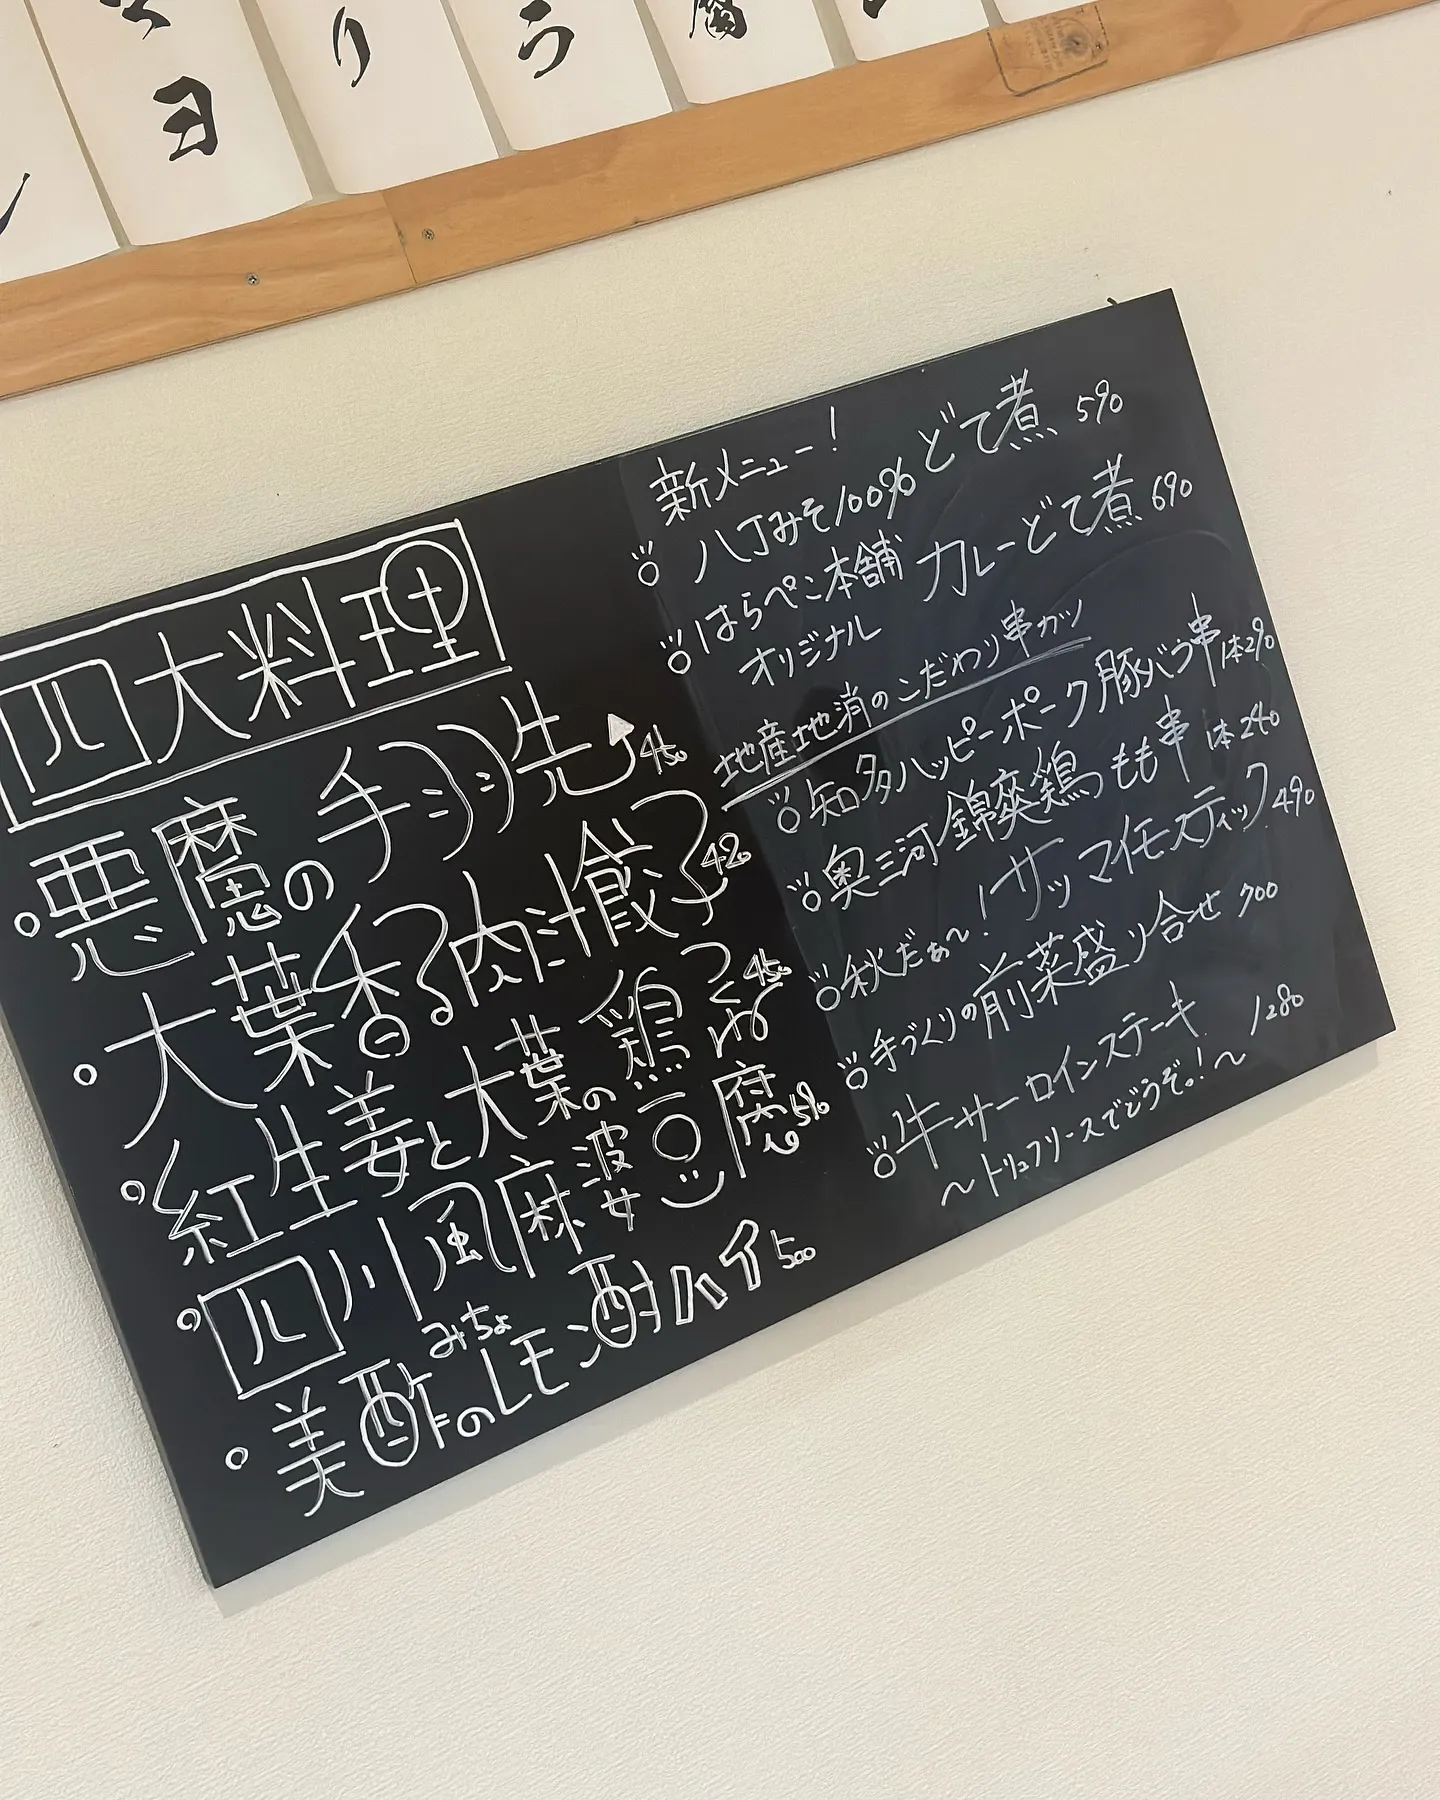 ヨ
り
う
四大料理
悪魔の手シシ先 450
大葉香る肉汁餃子 420
紅生姜と大葉の鶏つくね 450
四川風麻婆豆腐 590
みちょ
美酢のレモン酎ハイ 500
新メニュー!
八丁みそ100% どて煮 590
はらぺこ本舗 カレーどて煮 690
オリジナル
地産地消のこだわり串カツ
知多ハッピーポーク豚バラ串 1本290
奥三河錦爽鶏もも串 1本240
秋だぁ〜!サツマイモスティック 490
手づくりの前菜盛り合せ 700
牛サーロインステーキ 1280
〜トリュフソースでどうぞ。!〜